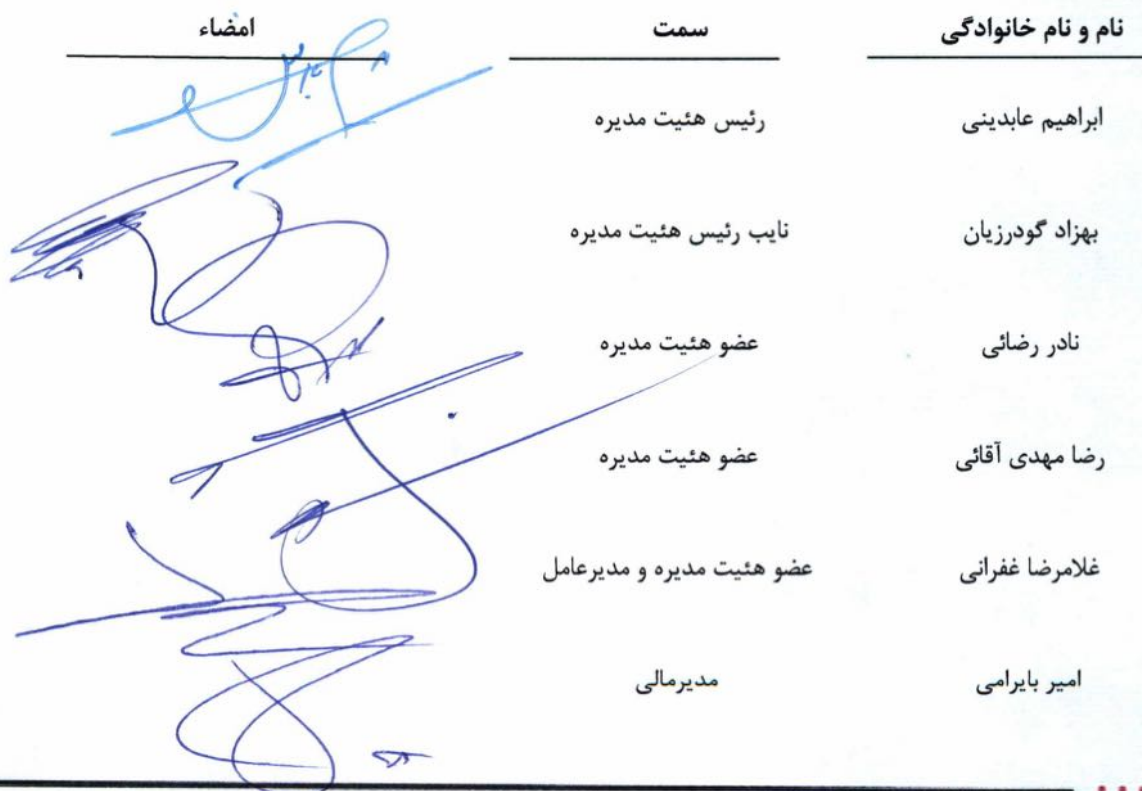 نام و نام خانوادگی سمت امضاء
ابراهیم عابدینی رئیس هئیت مدیره
بهزاد گودرزیان نایب رئیس هئیت مدیره
نادر رضائی عضو هئیت مدیره
رضا مهدی آقائی عضو هئیت مدیره
غلامرضا غفرانی عضو هئیت مدیره و مدیرعامل
امیر بایرامی مدیرمالی